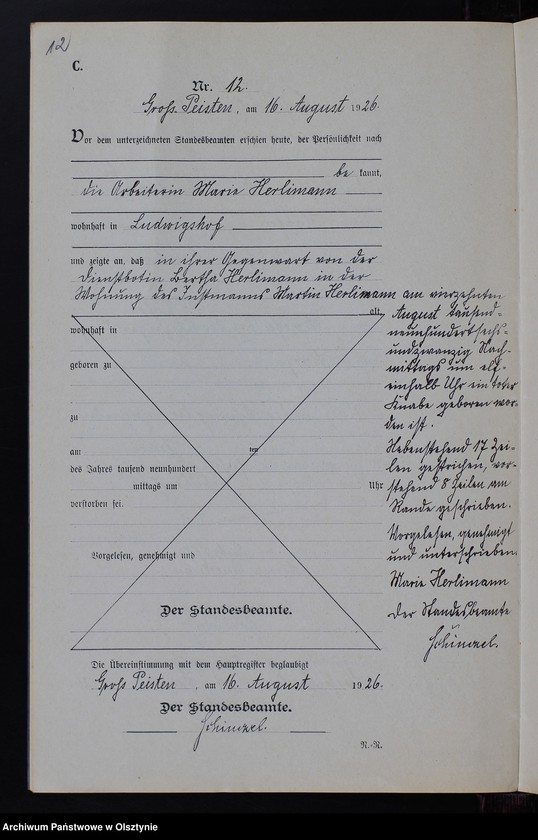 12
C.
Nr. 12.
Gross Peisten, am 16. August 1926.
Vor dem unterzeichneten Standesbeamten erschien heute, der Persönlichkeit nach
be kannt,
die Arbeiterin Marie Herlimann
wohnhaft in Ludwigshof
und zeigte an, daß in ihrer Gegenwart von der
Dienstbotin Bertha Herlimann in der
Wohnung des Instmanns Martin Herlimann am vierzehnten
alt,
August tausend-
wohnhaft in
neunhundertsechs-
undzwanzig Nach-
geboren zu
mittags um elf-
einhalb Uhr ein toter
Knabe geboren wor-
zu
den ist.
am ten
Nebenstehend 17 Zei-
des Jahres tausend neunhundert
len gestrichen, vor-
mittags um Uhr
stehend 8 Zeilen am
verstorben sei.
Rande geschrieben.
Vorgelesen, genehmigt
Vorgelesen, genehmigt und
und unterschrieben
Marie Herlimann
Der Standesbeamte.
Der Standesbeamte
Schimzel.
Die Übereinstimmung mit dem Hauptregister beglaubigt
Gross Peisten, am 16. August 1926.
Der Standesbeamte.
Schimzel.
R.-R.
Archiwum Państwowe w Olsztynie